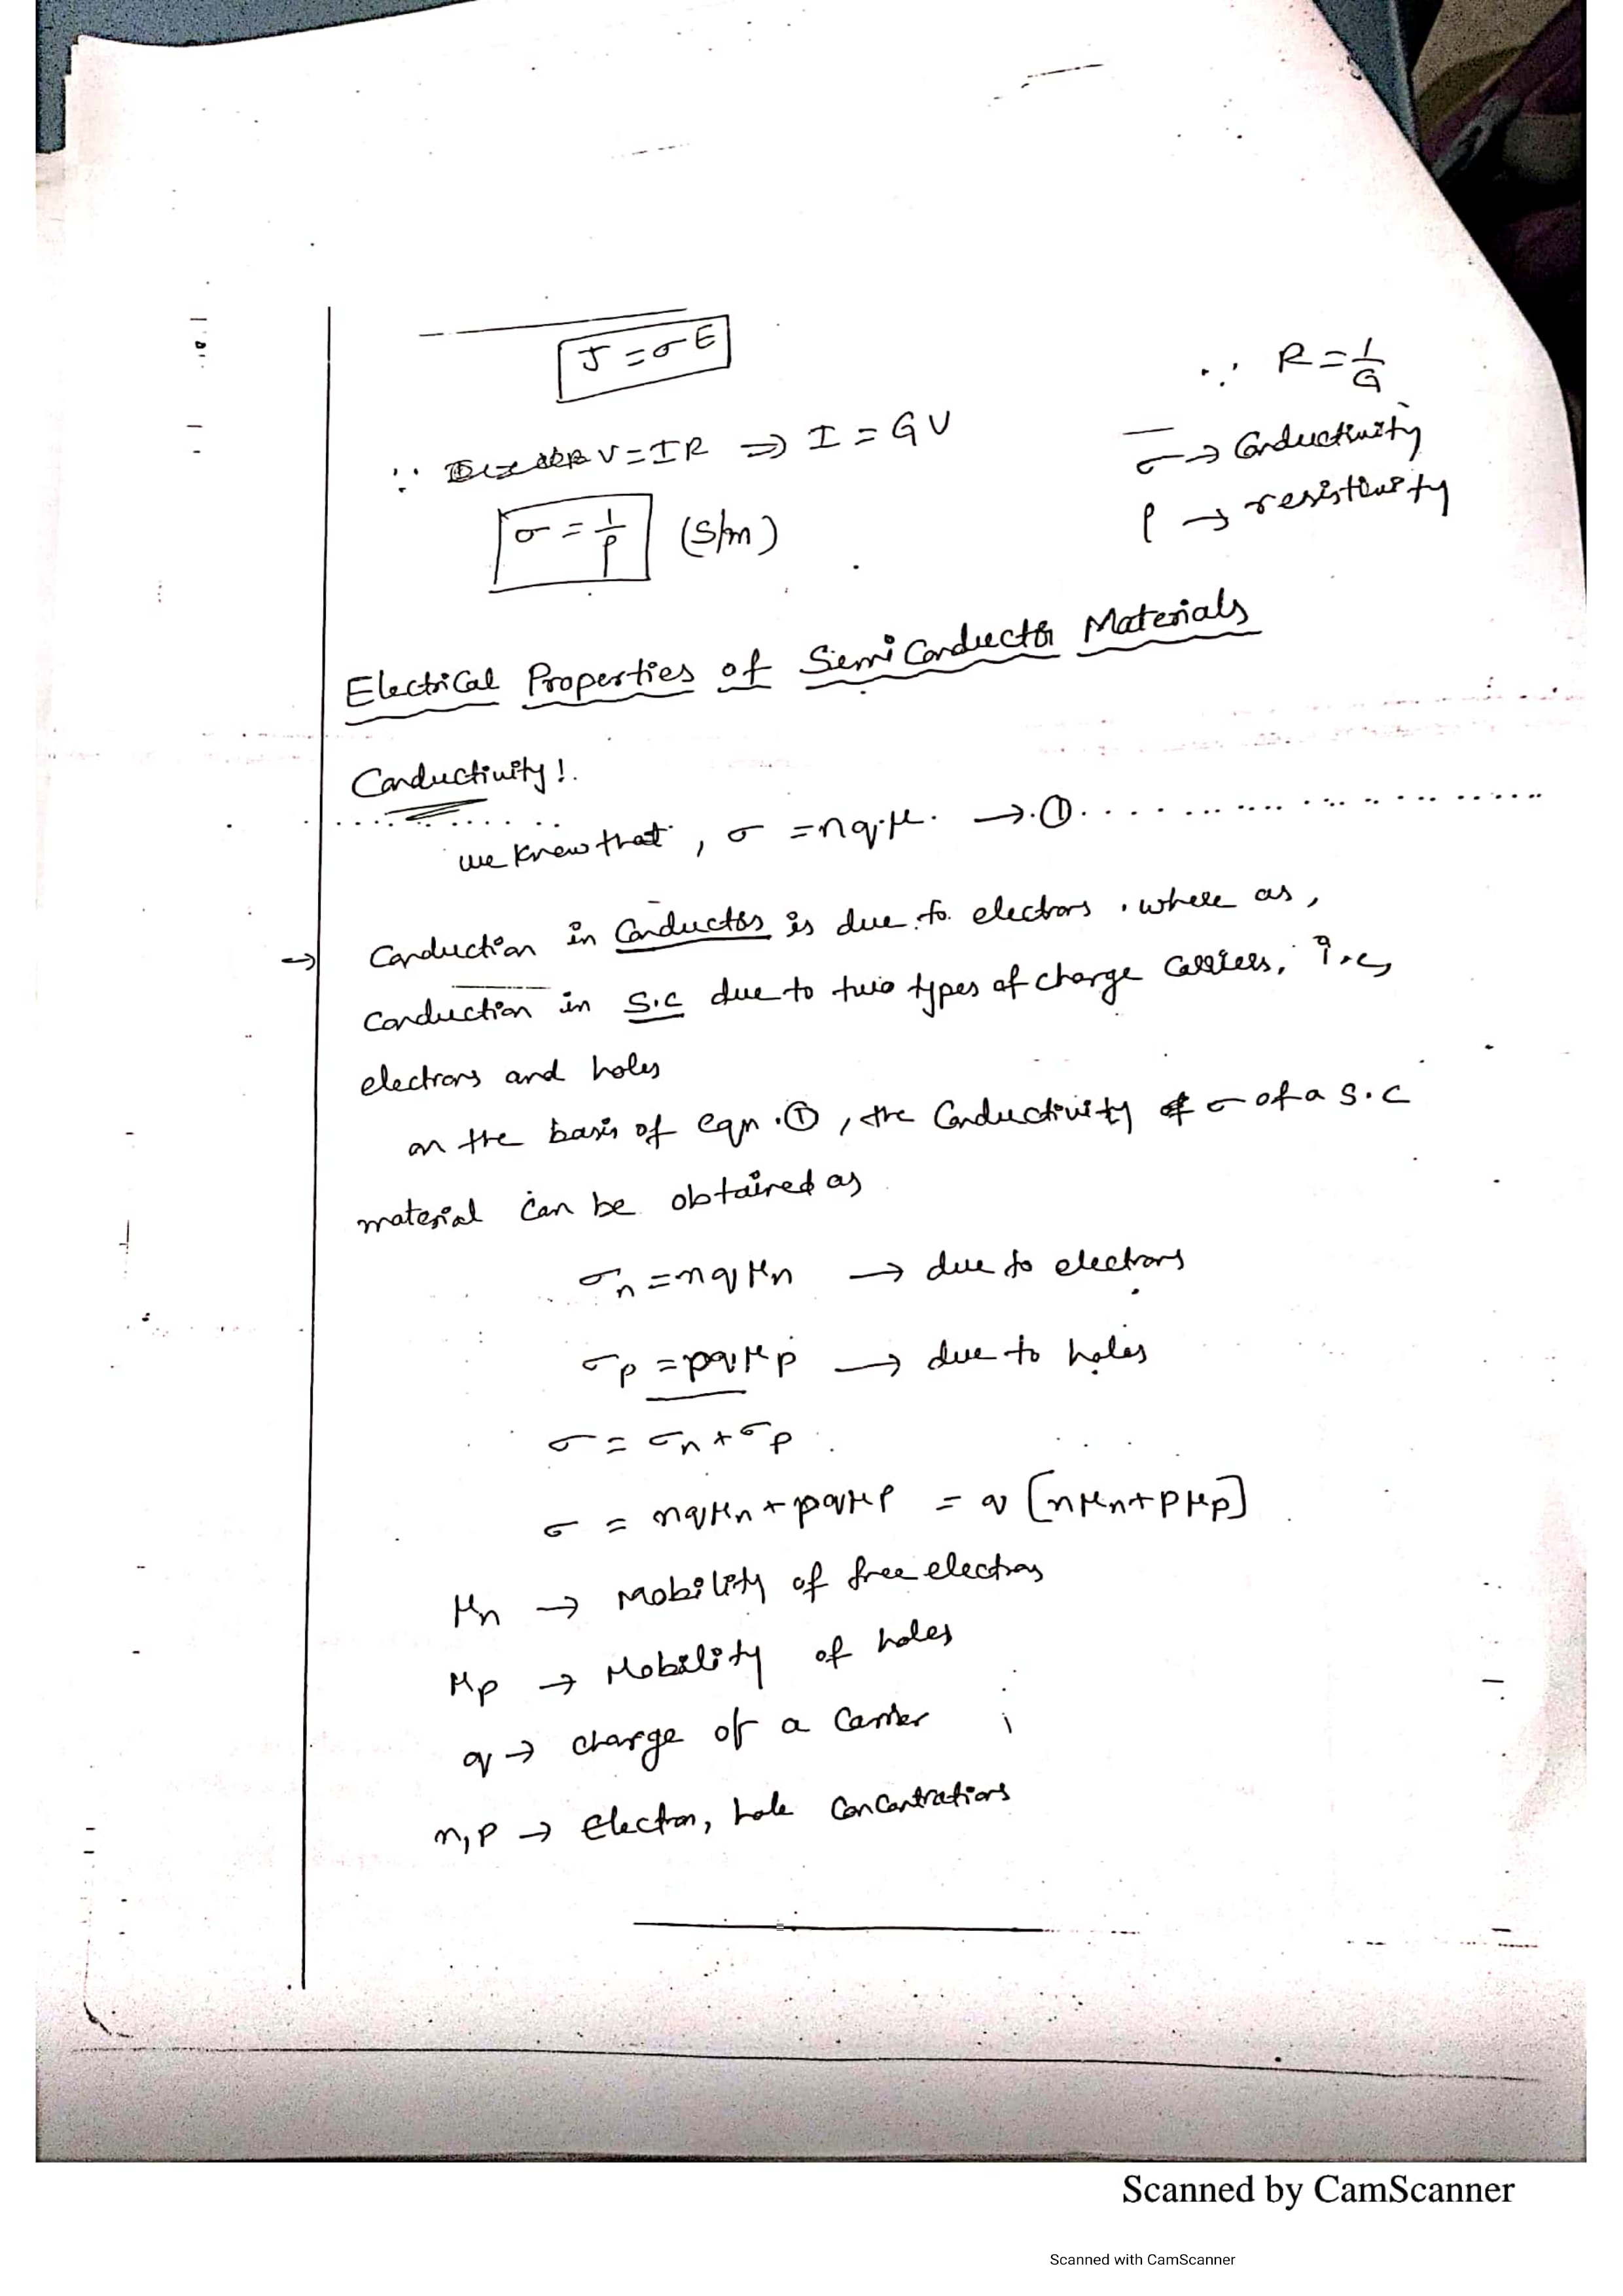 J = σE
∵ R = 1/G
∵ V = IR ⇒ I = GV
σ → Conductivity
σ = 1/ρ (S/m)
ρ → resistivity
Electrical Properties of SemiConductor Materials
Conductivity:
we know that, σ = nqμ. → ①
→ Conduction in Conductors is due to electrons. where as,
Conduction in S.C due to two types of charge carriers, i.e,
electrons and holes
on the basis of eqn. ①, the Conductivity σ of a S.C
material can be obtained as
σn = nqμn → due to electrons
σp = pqμp → due to holes
σ = σn + σp
σ = nqμn + pqμp = q [nμn + pμp]
μn → Mobility of free electrons
μp → Mobility of holes
q → charge of a Carrier
n, p → Electron, hole Concentrations
Scanned by CamScanner
Scanned with CamScanner